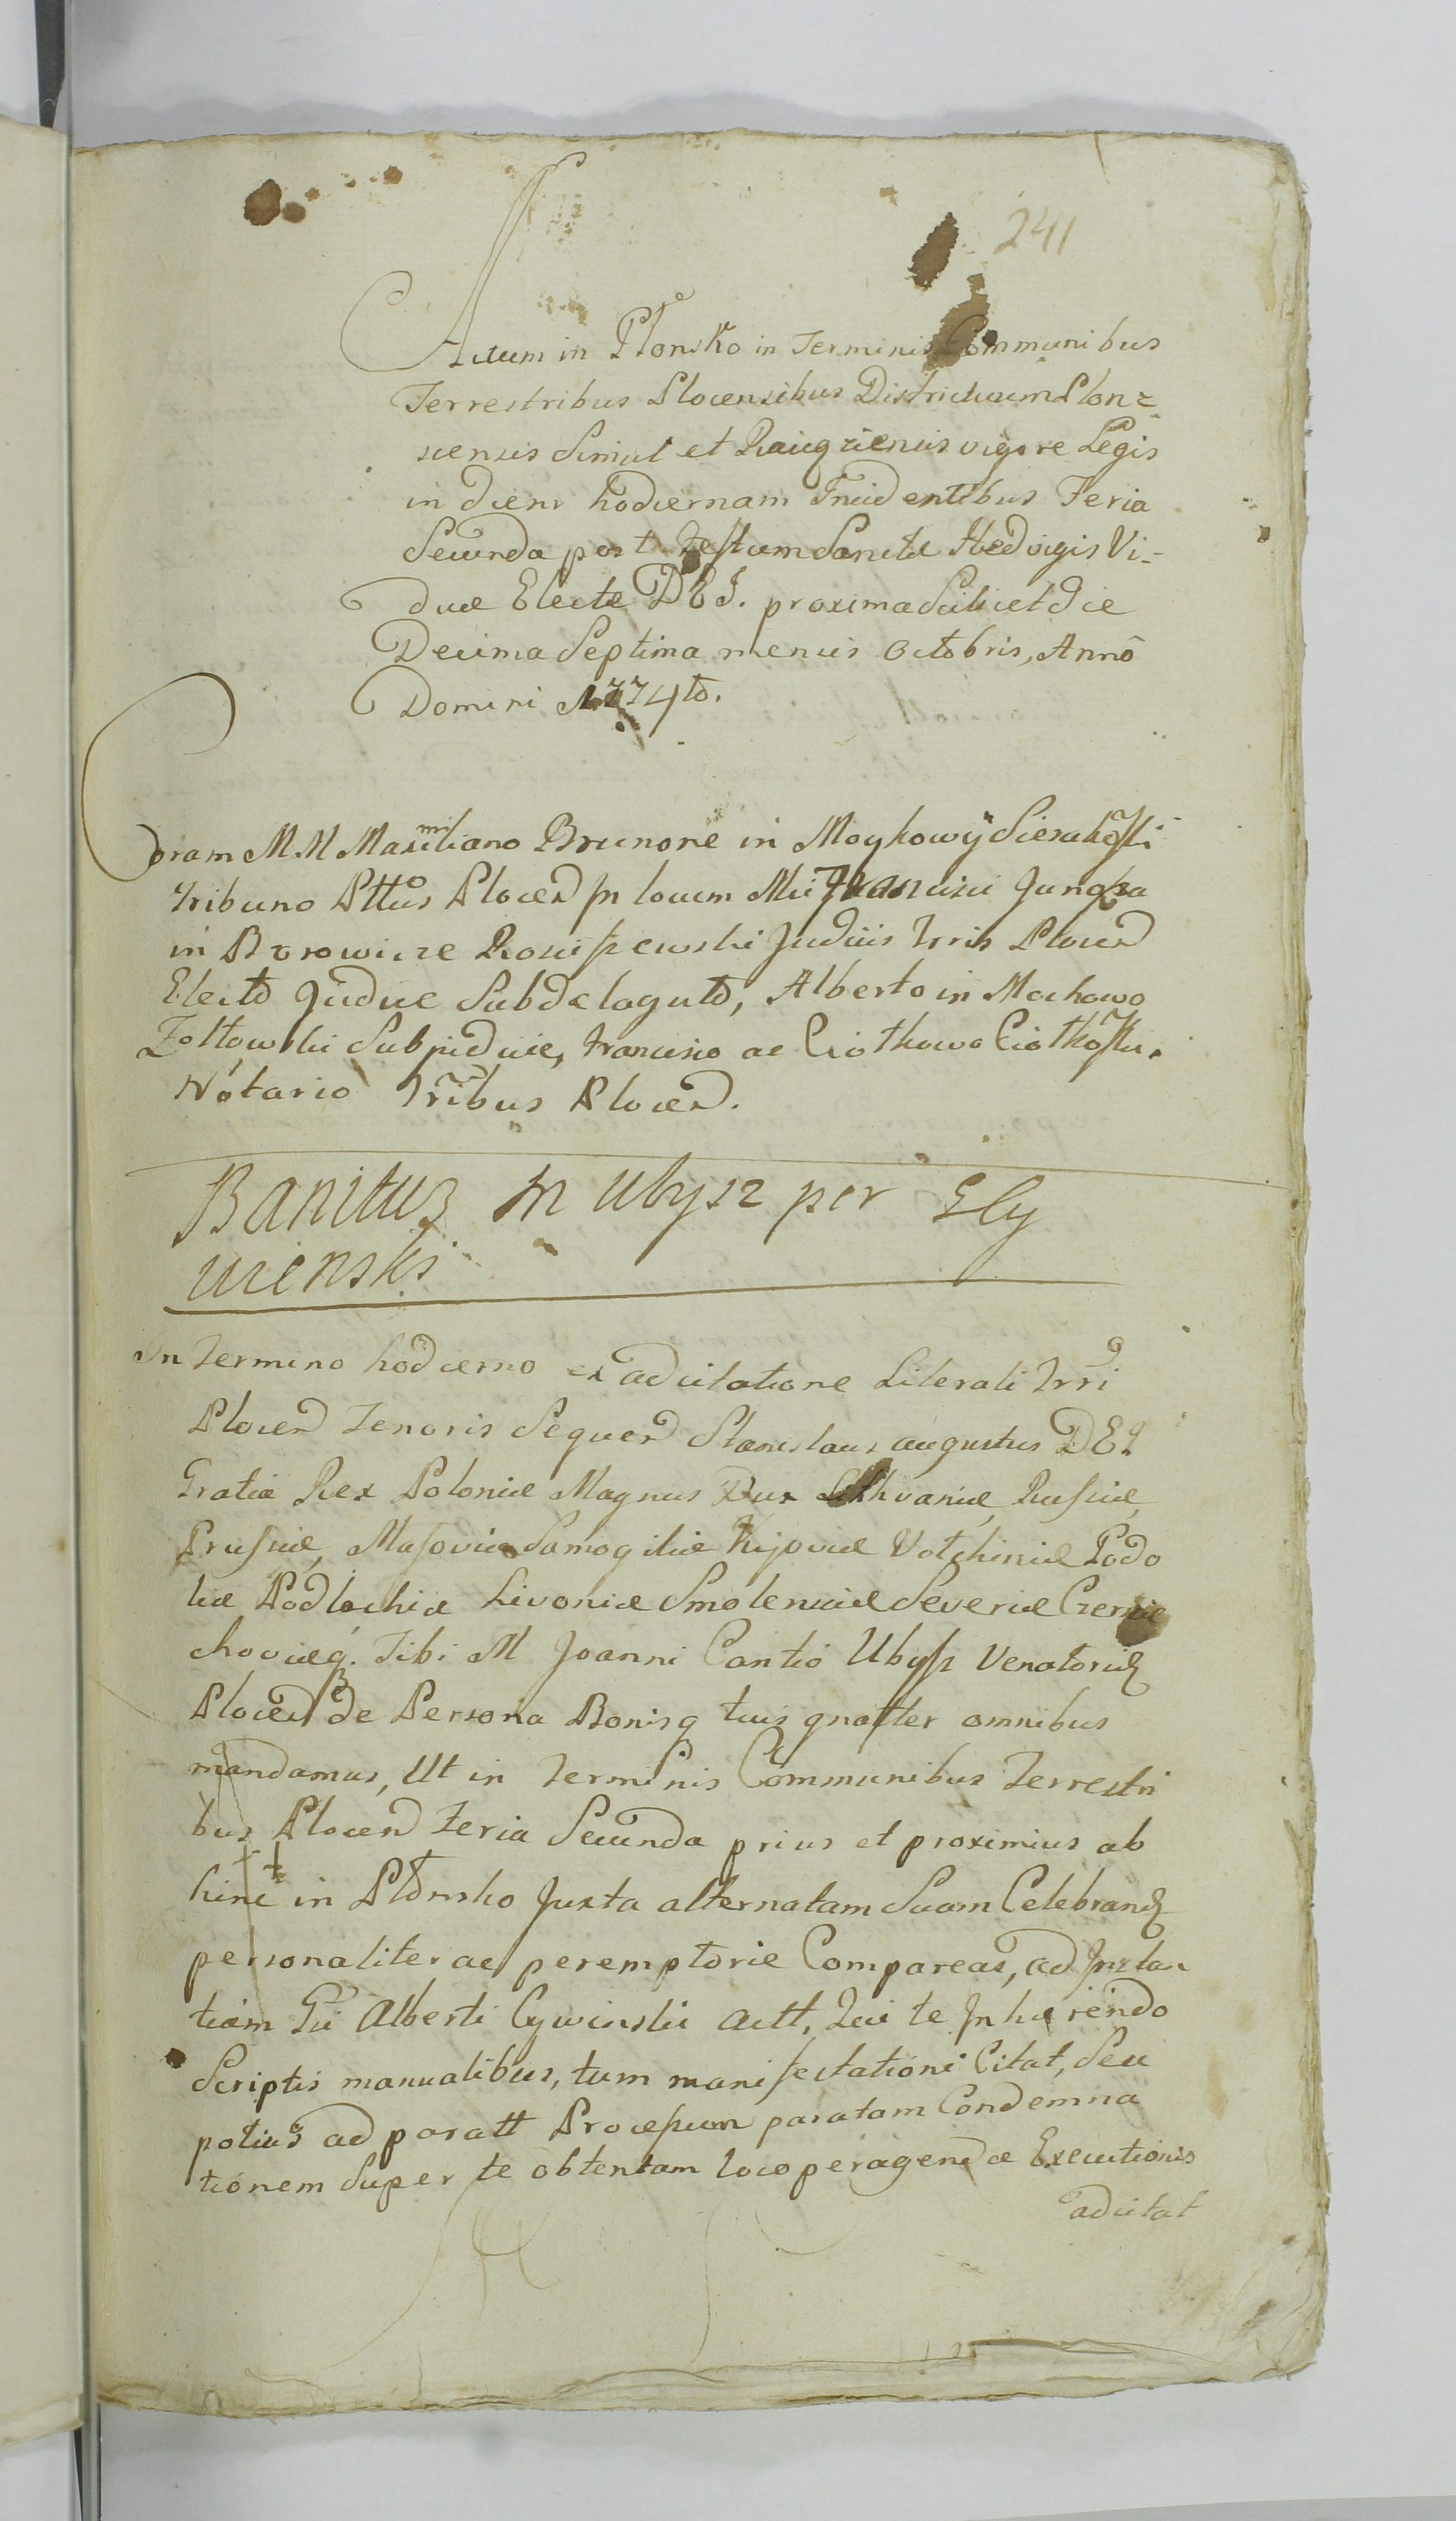 241
Actum in Płonsko in Terminis Communibus
Terrestribus Plocensibus Districtuum Plon=
scensis Simul et Raiągziensis vigore Legis
in diem hodiernam Incidentibus Feria
Secunda post Festum Sanctæ Hedvigis Vi=
duæ Electæ DEI. proxima Scilicet die
Decima Septima mensis Octobris, Annō
Domini 1774tō.
Coram MM Maximiliano Brunone in Moykowÿ Sierakoſki
Tribuno Pttūs Plocen in locum Mci Francisci Junosza
in Borowicze Rosciſzewski Judicis Trris Plocen
Electō Judice Subdelegatō, Alberto in Mochowo
Zołtowski Subjudice, Francisco ac Ciołkowo Ciołkoſki.
Nótario Trribus Plocen.
Banitus M Ubysz per Cy
wienski.
In Termino hodierno ex adcitatione Literali Trri
Plocen Tenoris Sequen Stanislaus augustus DEI
Gratia Rex Poloniæ Magnus Dux Lithvaniæ, Ruſsiæ,
Pruſsiæ, Maſoviæ Samogitiæ Kijoviæ Volchiniæ Podo
liæ Podlachiæ Livoniæ Smolensciæ Severiæ Czernie
choviæq. Tibi M Joanni Cantio Ubyſz Venatoridę
Plocen de Persona Bonisq tuis gnałter omnibus
mandamus, Ut in Terminis Communibus Terrestri
bus Plocen Feria Secunda prius et proximius ab
hinc in Płonsko Juxta alternatam Suam Celebrandę
personaliter ac peremptorie Compareas, ad Instan
tiam Gi Alberti Cywinski Actt, Qui te Inhærendo
Scriptis manualibus, tum manifestationi Citat, Seu
potius ad paratt Proceſsum paratam Condemna
tionem Super te obtentam loco peragendæ Executionis
adcitat